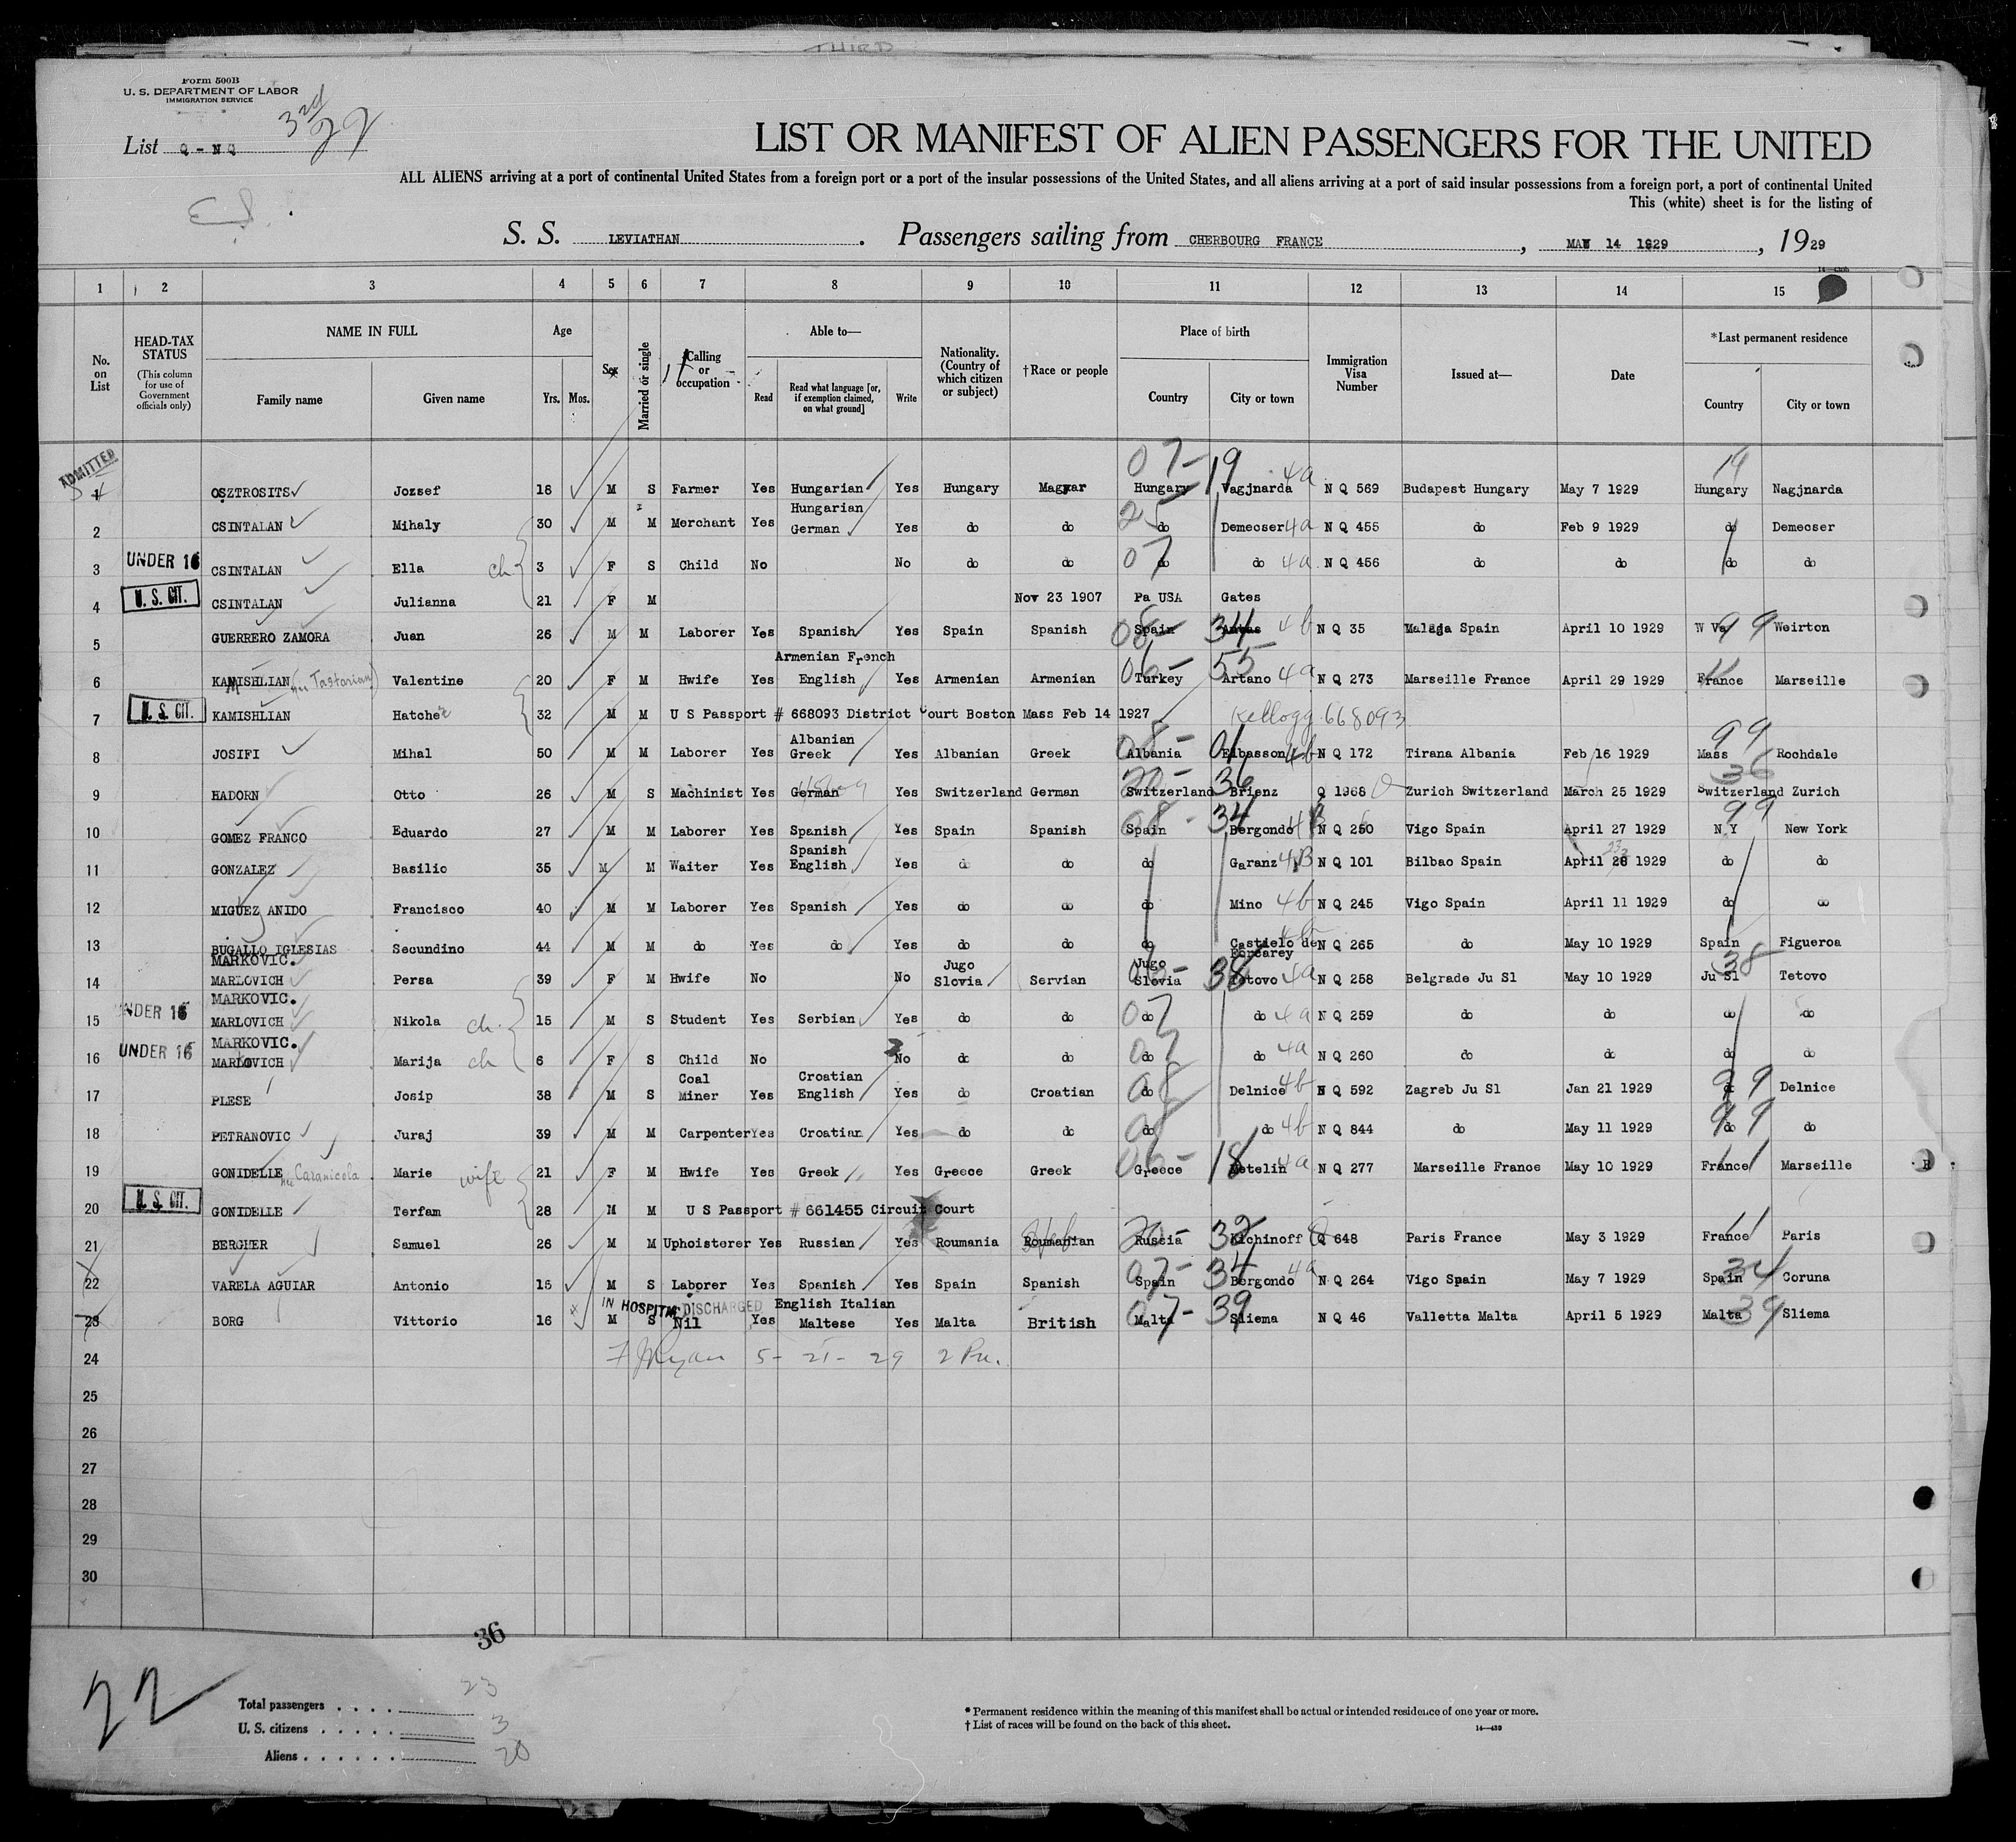 THIRD
Form 500B
U. S. DEPARTMENT OF LABOR
IMMIGRATION SERVICE
3rd
22
List Q - NQ
LIST OR MANIFEST OF ALIEN PASSENGERS FOR THE UNITED
ALL ALIENS arriving at a port of continental United States from a foreign port or a port of the insular possessions of the United States, and all aliens arriving at a port of said insular possessions from a foreign port, a port of continental United
This (white) sheet is for the listing of
S. S. LEVIATHAN. Passengers sailing from CHERBOURG FRANCE, MAY 14 1929, 1929
1 2 3 4 5 6 7 8 9 10 11 12 13 14 15
No. on List
HEAD-TAX STATUS
(This column for use of Government officials only)
NAME IN FULL
Family name Given name
Age
Yrs. Mos.
Sex
Married or single
Calling or occupation
Able to—
Read
Read what language [or, if exemption claimed, on what ground]
Write
Nationality. (Country of which citizen or subject)
†Race or people
Place of birth
Country City or town
Immigration Visa Number
Issued at—
Date
*Last permanent residence
Country City or town
ADMITTED
07- 19 4a 19
1 OSZTROSITS Jozsef 18 M S Farmer Yes Hungarian Yes Hungary Magyar Hungary Vagjnarda N Q 569 Budapest Hungary May 7 1929 Hungary Nagjnarda
2 CSINTALAN Mihaly 30 M M Merchant Yes Hungarian German Yes do do 25 do Demecser 4a N Q 455 do Feb 9 1929 do Demecser
3 UNDER 16 CSINTALAN Ella ch 3 F S Child No No do do 07 do do 4a N Q 456 do do do do
4 U. S. CIT. CSINTALAN Julianna 21 F M Nov 23 1907 Pa USA Gates
5 GUERRERO ZAMORA Juan 26 M M Laborer Yes Spanish Yes Spain Spanish 08- Spain 34 4b N Q 35 Malaga Spain April 10 1929 W Va 99 Weirton
6 KAMISHLIAN Valentine 20 F M Hwife Yes Armenian French English Yes Armenian Armenian 06- Turkey 55 Artano 4a N Q 273 Marseille France April 29 1929 France Marseille
7 U. S. CIT. KAMISHLIAN Hatcher 32 M M U S Passport # 668093 District Court Boston Mass Feb 14 1927 Kellogg 668093
8 JOSIFI Mihal 50 M M Laborer Yes Albanian Greek Yes Albanian Greek 08- Albania 01 Elbasson 4b N Q 172 Tirana Albania Feb 16 1929 99 Mass Rochdale
9 HADORN Otto 26 M S Machinist Yes German Yes Switzerland German 20- Switzerland 36 Brienz Q 1968 Zurich Switzerland March 25 1929 36 Switzerland Zurich
10 GOMEZ FRANCO Eduardo 27 M M Laborer Yes Spanish Yes Spain Spanish 08- Spain 34 Bergondo 4B N Q 250 Vigo Spain April 27 1929 99 N Y New York
11 GONZALEZ Basilio 35 M M Waiter Yes Spanish English Yes do do do Garanz 4B N Q 101 Bilbao Spain April 26 1929 do do
12 MIGUEZ ANIDO Francisco 40 M M Laborer Yes Spanish Yes do do do Mino 4b N Q 245 Vigo Spain April 11 1929 do do
13 BUGALLO IGLESIAS Secundino 44 M M do Yes do Yes do do do Castielo de Forcarey N Q 265 do May 10 1929 Spain Figueroa
14 MARKOVIC. MARLOVICH Persa 39 F M Hwife No No Jugo Slovia Servian Jugo Slovia 38 Tetovo 4a N Q 258 Belgrade Ju Sl May 10 1929 38 Ju Sl Tetovo
15 UNDER 16 MARKOVIC. MARLOVICH Nikola ch. 15 M S Student Yes Serbian Yes do do 07 do do 4a N Q 259 do do do do
16 UNDER 16 MARKOVIC. MARLOVICH Marija ch 6 F S Child No No do do 07 do do 4a N Q 260 do do do do
17 PLESE Josip 38 M S Coal Miner Yes Croatian English Yes do Croatian 08 do Delnice 4b N Q 592 Zagreb Ju Sl Jan 21 1929 99 do Delnice
18 PETRANOVIC Juraj 39 M M Carpenter Yes Croatian Yes do do 08 do do 4b N Q 844 do May 11 1929 99 do do
19 GONIDELLE nee Caranicola Marie wife 21 F M Hwife Yes Greek Yes Greece Greek 06- Greece 18 Metelin 4a N Q 277 Marseille France May 10 1929 11 France Marseille R
20 U. S. CIT. GONIDELLE Terfam 28 M M U S Passport # 661455 Circuit Court
21 BERGHER Samuel 26 M M Uphoisterer Yes Russian Yes Roumania Roumanian Heb 20- Russia 32 Kichinoff Q 648 Paris France May 3 1929 11 France Paris
22 VARELA AGUIAR Antonio 16 M S Laborer Yes Spanish Yes Spain Spanish 07- Spain 34 Bergondo 4a N Q 264 Vigo Spain May 7 1929 34 Spain Coruna
IN HOSPITAL DISCHARGED
23 BORG Vittorio 16 M S Nil Yes English Italian Maltese Yes Malta British 07- Malta 39 Sliema N Q 46 Valletta Malta April 5 1929 39 Malta Sliema
24 F J Ryan 5-21-29 2 Pm.
25
26
27
28
29
30
36
22
Total passengers . . . . 23
U. S. citizens . . . . . 3
Aliens . . . . . . 20
* Permanent residence within the meaning of this manifest shall be actual or intended residence of one year or more.
† List of races will be found on the back of this sheet.
14—430